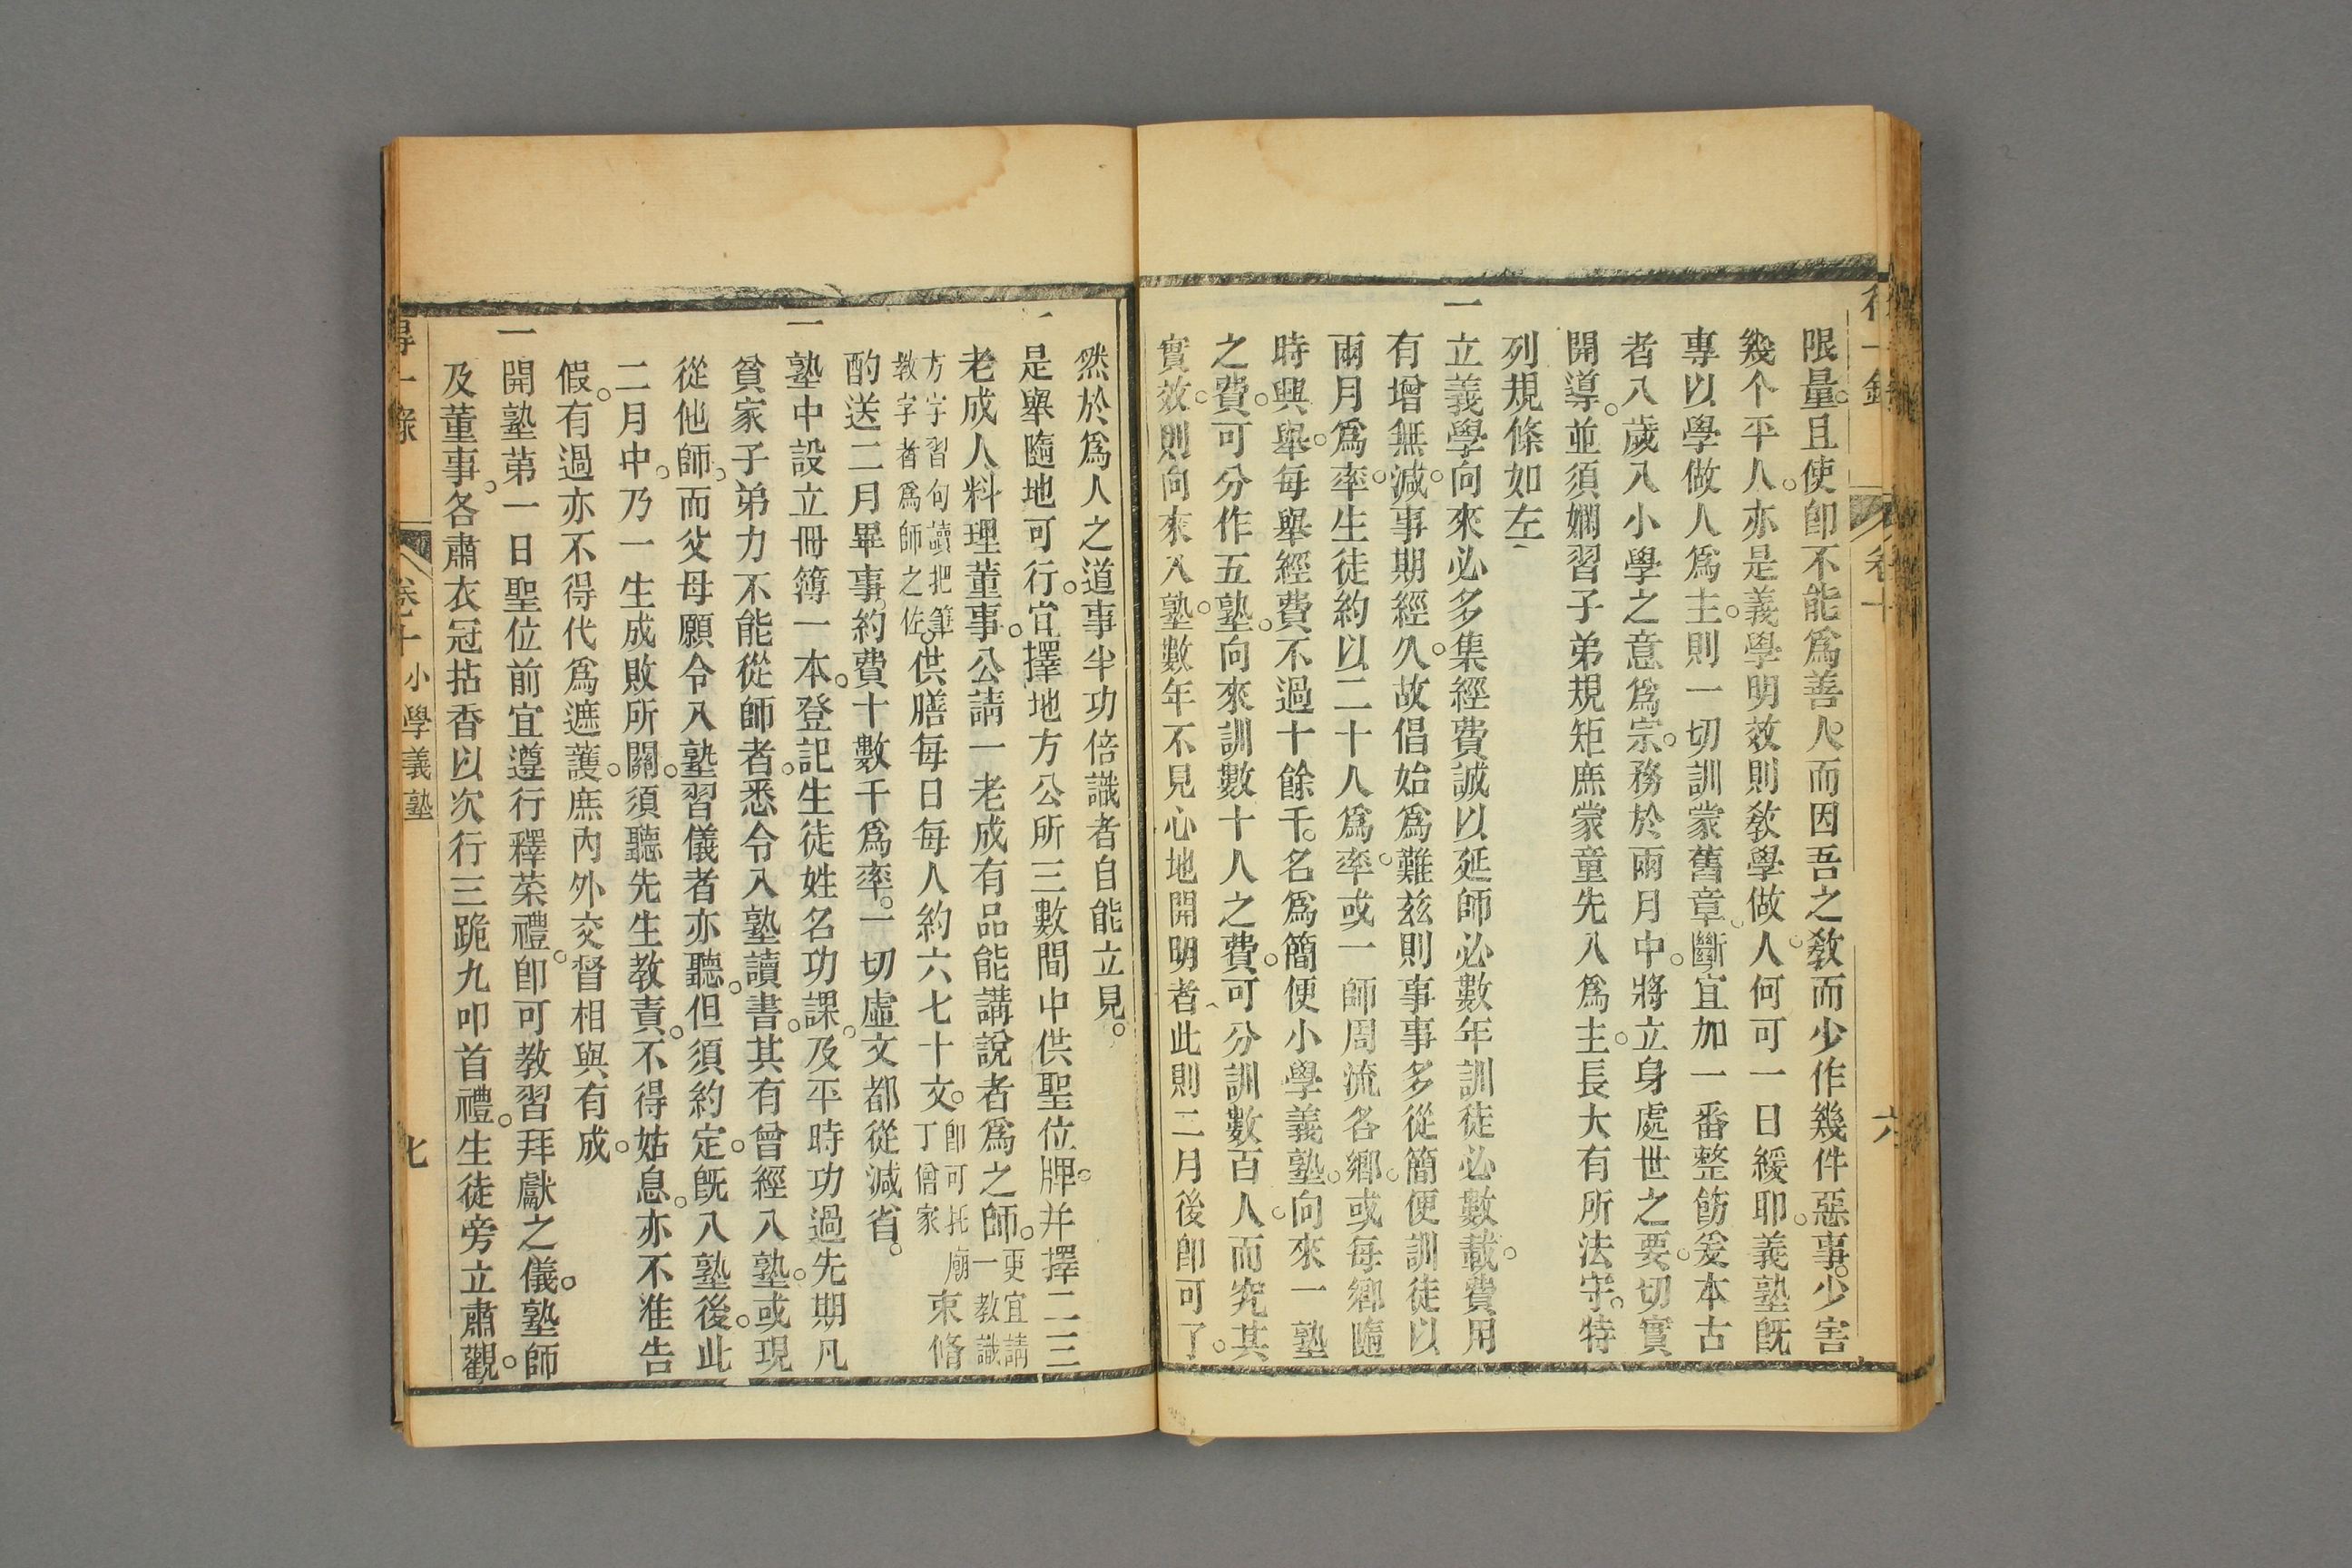 得一錄
卷十
六
限量。且使卽不能爲善人。而因吾之敎而少作幾件惡事。少害
幾个平人。亦是義學明效則敎學做人。何可一日緩耶。義塾旣
專以學做人爲主。則一切訓蒙舊章。斷宜加一番整飭。爰本古
者八歲入小學之意爲宗。務於兩月中。將立身處世之要。切實
開導。並須嫻習子弟規矩庶蒙童先入爲主。長大有所法守。特
列規條如左
一立義學向來必多集經費誠以延師必數年訓徒必數載。費用
有增無減。事期經久。故倡始爲難茲則事事多從簡便訓徒以
兩月爲率。生徒約以二十人爲率。或一師周流各鄉。或每鄉隨
時興舉。每舉經費。不過十餘千。名爲簡便小學義塾。向來一塾
之費。可分作五塾。向來訓數十人之費。可分訓數百人。而究其
實效。則向來入塾。數年不見心地開明者此則二月後卽可了。
然於爲人之道事半功倍識者自能立見。
一是舉隨地可行。宜擇地方公所三數間中供聖位牌。并擇二三
老成人料理董事。公請一老成有品能講說者爲之師。更宜請一教識
方字習句讀把筆教字者爲師之佐。供膳每日每人約六七十文。卽可托廟丁僧家束脩
酌送二月畢事。約費十數千爲率。一切虛文都從減省。
一塾中設立冊簿一本。登記生徒姓名功課。及平時功過先期凡
貧家子弟力不能從師者。悉令入塾讀書。其有曾經入塾。或現
從他師。而父母願令入塾習儀者亦聽。但須約定。旣入塾後。此
二月中。乃一生成敗所關。須聽先生教責。不得姑息。亦不准告
假。有過亦不得代爲遮護。庶內外交督相與有成。
一開塾第一日聖位前宜遵行釋菜禮。卽可教習拜獻之儀。塾師
及董事。各肅衣冠拈香以次行三跪九叩首禮。生徒旁立肅觀。
得一錄
卷十
小學義塾
七